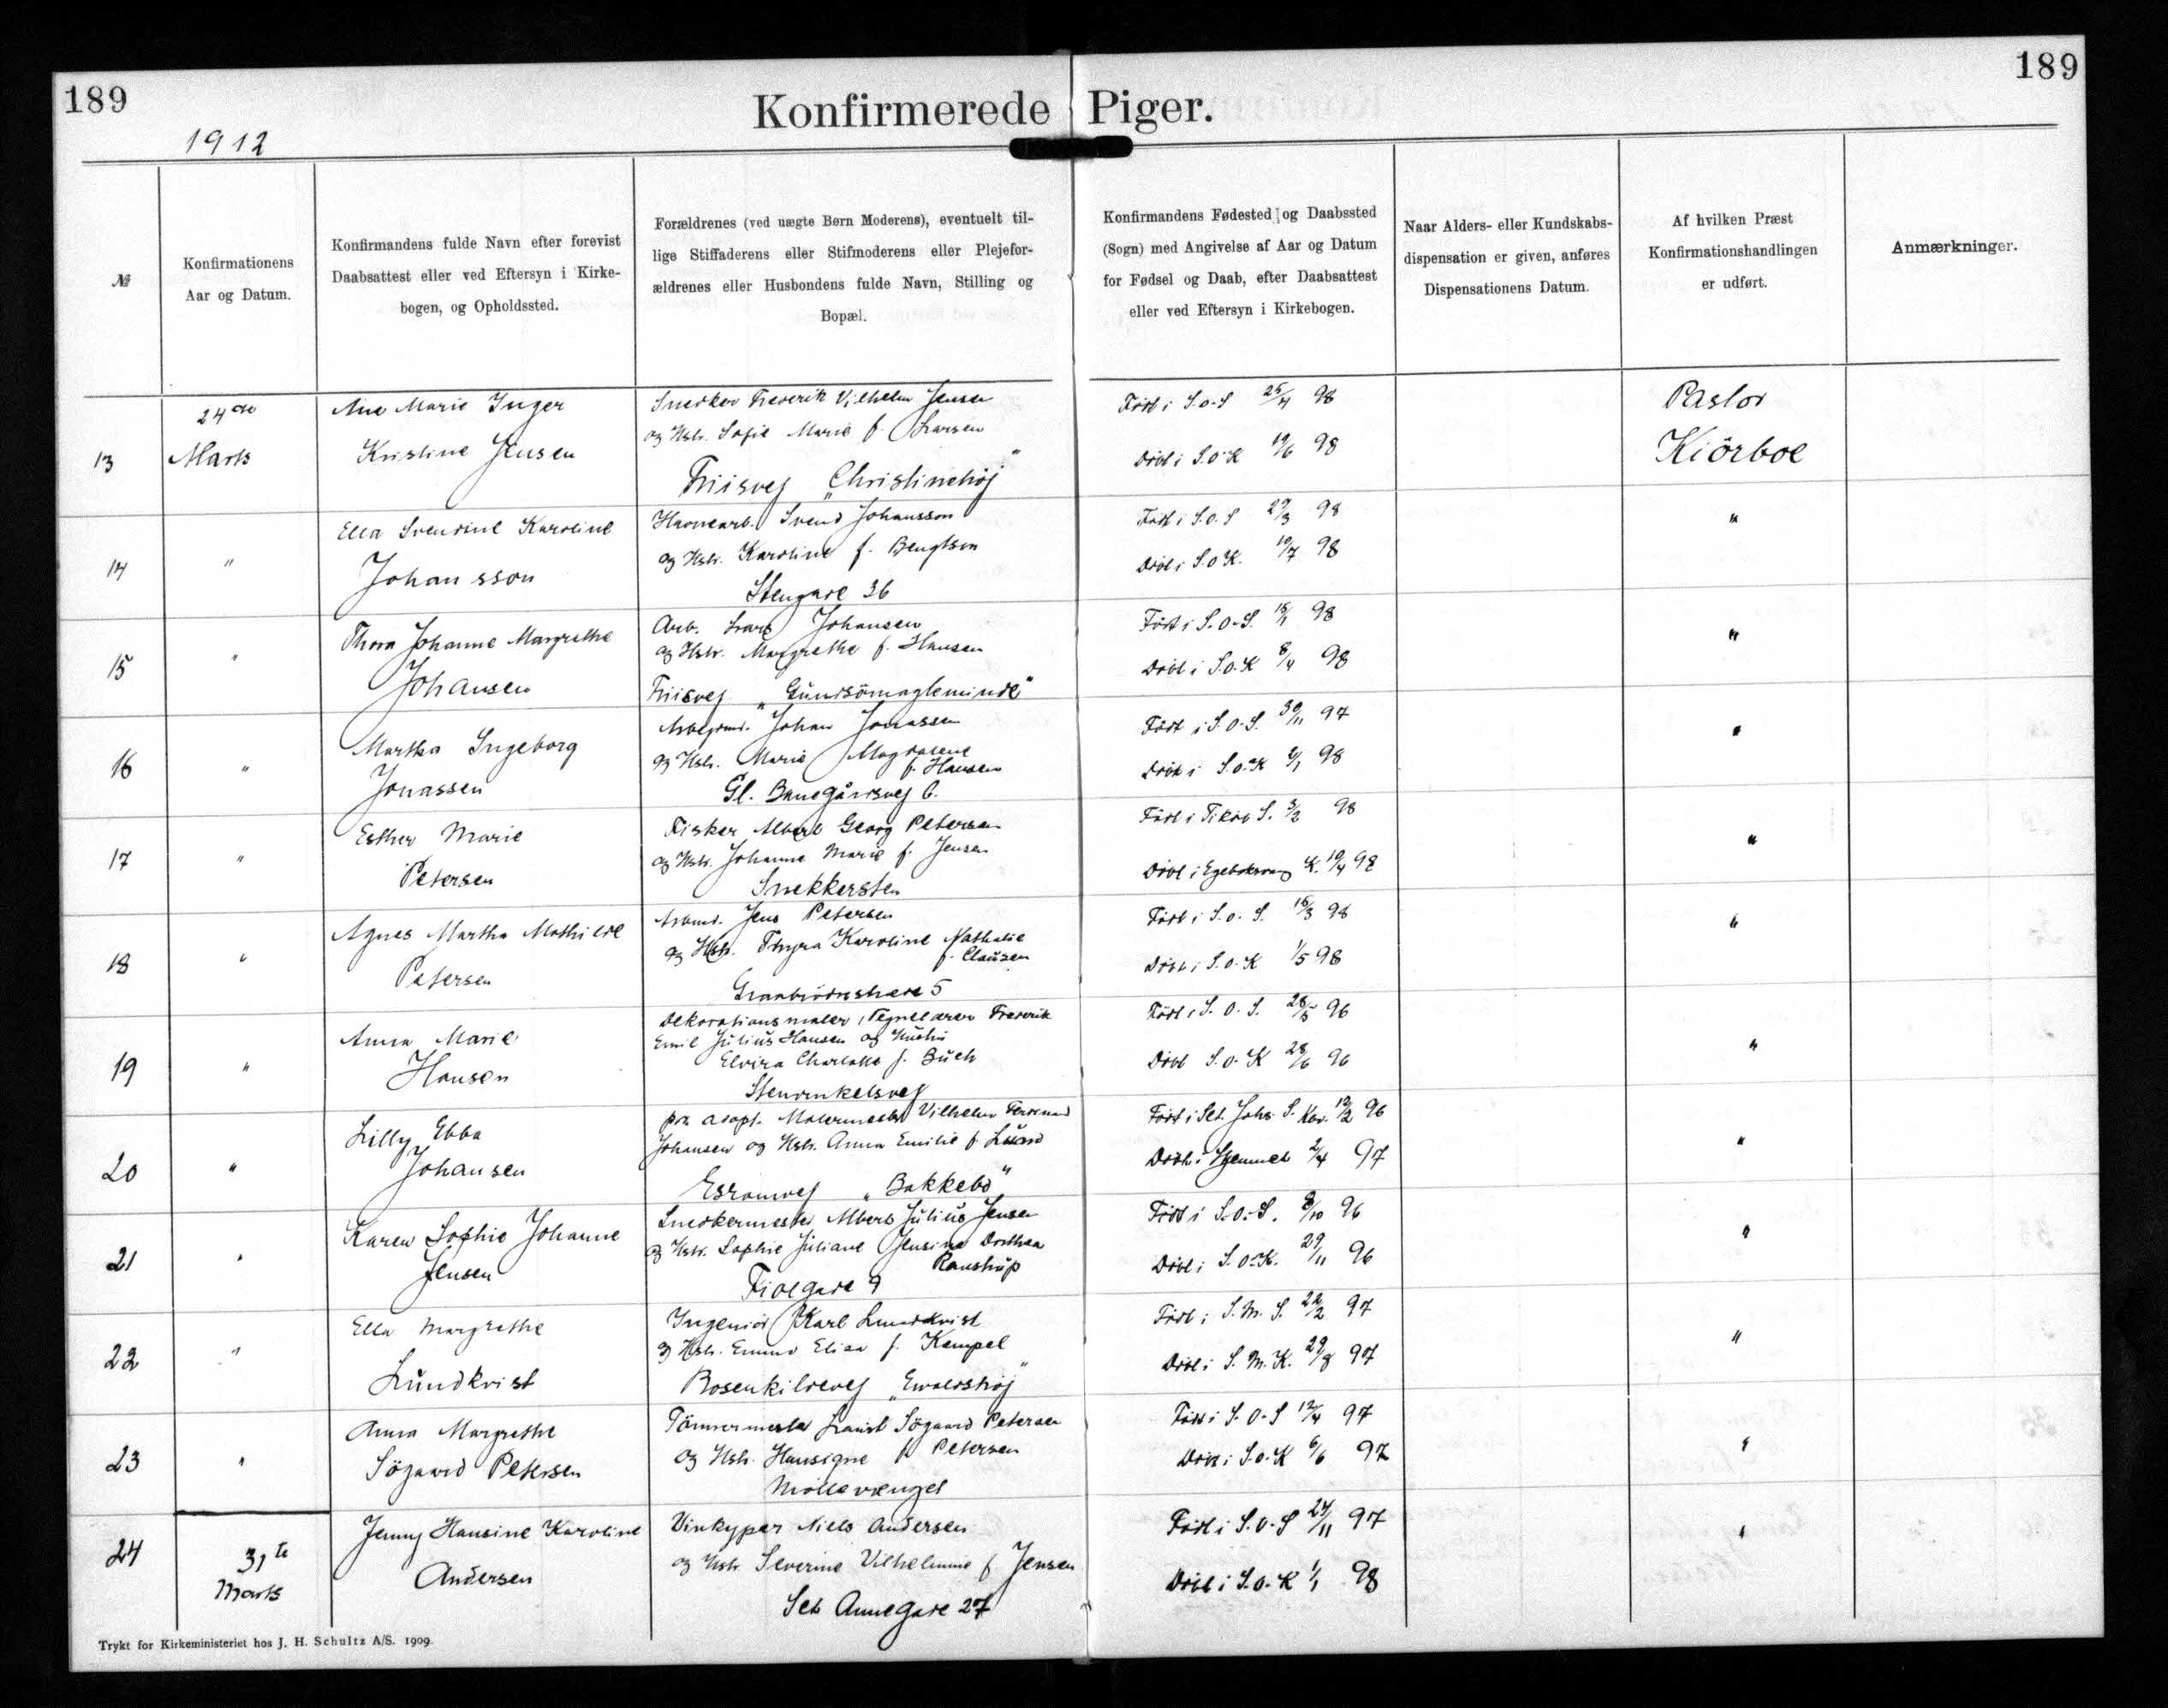 189
189
Konfirmerede Piger.
1912
№
Konfirmationens
Aar og Datum.
Konfirmandens fulde Navn efter forevist
Daabsattest eller ved Eftersyn i Kirke-
bogen, og Opholdssted.
Forældrenes (ved uægte Børn Moderens), eventuelt til-
lige Stiffaderens eller Stifmoderens eller Plejefor-
ældrenes eller Husbondens fulde Navn, Stilling og
Bopæl.
Konfirmandens Fødested og Daabssted
(Sogn) med Angivelse af Aar og Datum
for Fødsel og Daab, efter Daabsattest
eller ved Eftersyn i Kirkebogen.
Naar Alders- eller Kundskabs-
dispensation er given, anføres
Dispensationens Datum.
Af hvilken Præst
Konfirmationshandlingen
er udført.
Anmærkninger.
13
24de
Marts
Ane Marie Inger
Kristine Jensen
Snedker Frederik Vilhelm Jensen
og Hstr. Sofie Marie f. Larsen
Friisvej „Christinehöj"
Född i S.o.S 25/4 98
Döbt i S.o.K 19/6 98
Pastor
Kiörboe
14
"
Ella Svendine Karoline
Johansson
Havnearb. Svend Johansson
og Hstr. Karoline f. Bengtson
Stengade 36
Född i S.o.S 29/3 98
Döbt i S.o.K. 10/7 98
"
15
"
Thora Johanne Margrethe
Johansen
Arb. Lars Johansen
og Hstr. Margrethe f. Hansen
Friisvej „Gundsömagleminde"
Född i S.o.S. 15/1 98
Döbt i S.o.K 8/4 98
"
16
"
Martha Ingeborg
Jonassen
Arbejdsmd. Johan Jonassen
og Hstr. Marie Magdalene
f. Hansen
Gl. Banegårdsvej 6.
Född i S.o.S. 30/11 97
Döbt i S.o.K 2/1 98
"
17
"
Esther Marie
Petersen
Fisker Albert Georg Petersen
og Hstr. Johanne Marie f. Jensen
Snekkersten
Född i Tikøb S. 3/2 98
Döbt i Egebæksvang K. 10/4 98
"
18
"
Agnes Martha Mathilde
Petersen
Arbmd. Jens Petersen
og Hstr. Thyra Karoline Nathalie
f. Clausen
Graabrödrestræde 5
Född i S.o.S. 16/3 98
Döbt i S.o.K 1/5 98
"
19
"
Anna Marie
Hansen
Dekorationsmaler, Tegnelærer Frederik
Emil Julius Hansen og Hustru
Elvira Charlotte f. Buch
Stenvinkelsvej
Född i S.o.S. 28/5 96
Döbt S.o.K 28/6 96
"
20
"
Lilly Ebba
Johansen
Adopt. Malermester Vilhelm Ferdinand
Johansen og Hstr. Anna Emilie f. Lund
Esromvej „Bakkebo"
Född i Sct. Johs. S. Kbv. 12/2 96
Döbt i Hjemmet 2/4 97
"
21
"
Karen Sophie Johanne
Jensen
Snedkermester Albert Julius Jensen
og Hstr. Sophie Juliane Jensine Dorthea
Ranstrup
Fiolgade 9
Född i S.o.S. 8/10 96
Döbt i S.o.K. 29/11 96
"
22
"
Ella Margrethe
Lundkvist
Ingeniör Karl Lundkvist
og Hstr. Emma Elisa f. Kempel
Rosenkildevej „Ewaldshöj"
Född i S.M.S. 22/2 97
Döbt i S.M.K. 29/8 97
"
23
"
Anna Margrethe
Sögaard Petersen
Tömrermester Laurits Sögaard Petersen
og Hstr. Hansigne f. Petersen
Möllevænget
Född i S.o.S 12/4 97
Döbt i S.o.K 6/6 97
"
24
31te
Marts
Jenny Hansine Karoline
Andersen
Vinkyper Niels Andersen
og Hstr. Severine Vilhelmine f. Jensen
Sct. Annegade 27
Född i S.o.S 24/11 97
Döbt i S.o.K 1/1 98
"
Trykt for Kirkeministeriet hos J. H. Schultz A/S. 1909.